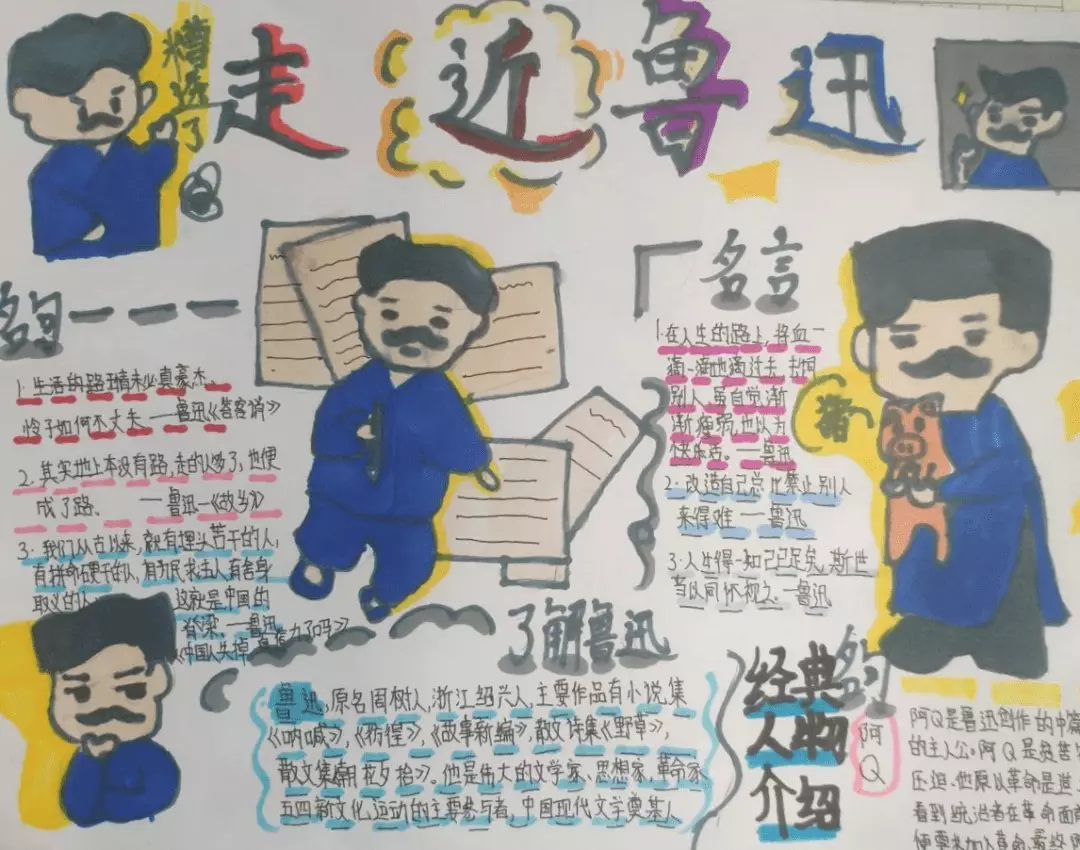 糟透了
走近鲁迅
名句
1. 生活的路, 情未必真豪杰,
怜子如何不丈夫 ——鲁迅《答客诮》
2. 其实地上本没有路,走的人多了,也便
成了路、 ——鲁迅—《故乡》
3. 我们从古以来,就有埋头苦干的人,
有拼命硬干的人,有为民求法人有舍身
取义的人 这就是中国的
脊梁.——鲁迅
《中国人失掉自信力了吗》
名言
1. 在人生的路上,将血一
滴一滴地滴过去,去饲
别人,虽自觉渐
渐瘦弱,也以为
快乐活。——鲁迅
2. 改造自己总比禁止别人
来得难 ——鲁迅
3. 人生得一知己足矣,斯世
当以同怀视之.—鲁迅
猪
了解鲁迅
鲁迅,原名周树人,浙江绍兴人,主要作品有小说集
《呐喊》,《彷徨》,《故事新编》,散文诗集《野草》,
散文集朝花夕拾》。他是伟大的文学家、思想家,革命家
五四新文化,运动的主要参与者,中国现代文学奠基人
经典
人物
介绍
阿Q
阿Q是鲁迅创作的中篇
的主人公.阿Q是贫苦
压迫.他原以革命是造
看到统治者在革命面前
便要求加入革命,最终